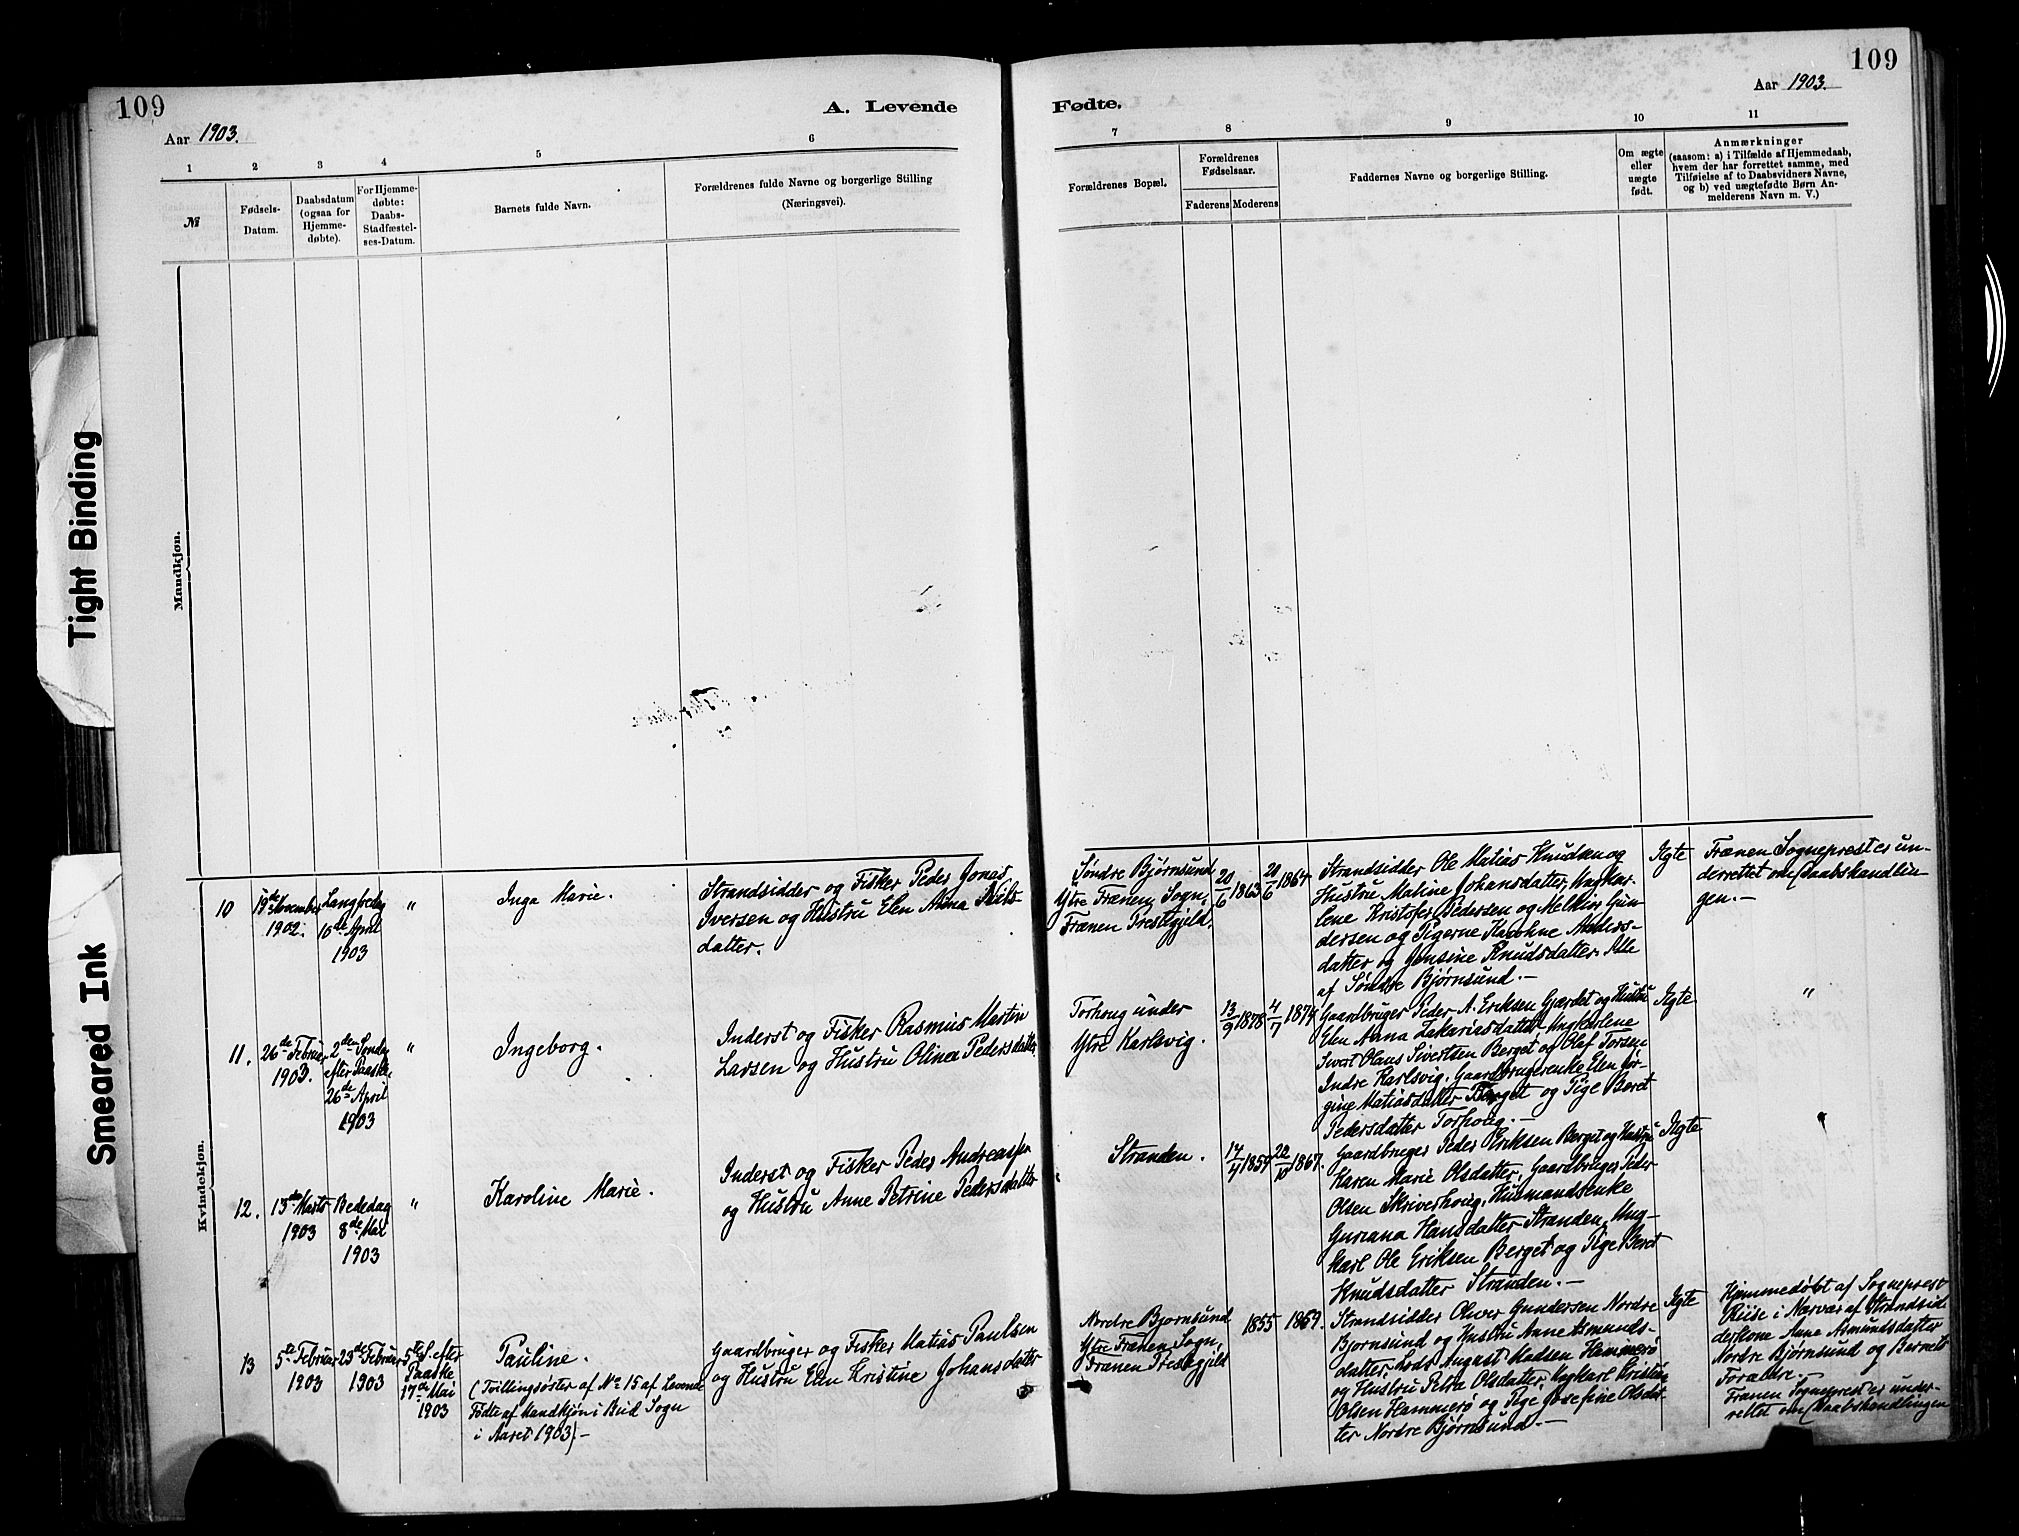 109
Aar 1903.
A. Levende
Fødte.
109
Aar 1903.
1
2
3
4
5
6
7
8
9
10
11
№
Fødsels-
Datum.
Daabsdatum
(ogsaa for
Hjemme-
døbte).
For Hjemme-
døbte:
Daabs-
Stadfæstel-
ses-Datum.
Barnets fulde Navn.
Forældrenes fulde Navne og borgerlige Stilling
(Næringsvei).
Forældrenes Bopæl.
Forældrenes
Fødselsaar.
Faderens
Moderens
Faddernes Navne og borgerlige Stilling.
Om ægte
eller
uægte
født.
Anmærkninger
(saasom: a) i Tilfælde af Hjemmedaab,
hvem der har forrettet samme, med
Tilføielse af to Daabsvidners Navne,
og b) ved uægtefødte Børn An-
melderens Navn m. V.)
Tight Binding
Smeared Ink
Mandkjøn.
Kvindekjøn.
10
19de November
1902.
Langfredag
10de April
1903
"
Inga Marie.
Strandsidder og Fisker Peder Jonas
Iversen og Hustru Elen Anna
datter.
Søndre Bjørnsund
Ytre Frænen Sogn,
Frænen Prestegjeld.
20/6 1863
20/6 1864
Strandsidder Ole Matias Knudsen og
Hustru Maline Johansdatter, Ungkar-
lene Kristofer Pedersen og Melkior Gun-
dersen og Pigerne Anders-
datter og Jensine Knudsdatter. Alle
af Søndre Bjørnsund.-
Ægte
Frænen Sogneprest er un-
derrettet om Daabshandlin-
gen.-
11.
26de Februar
1903.
2den Sønd.
efter Paaske.
26de April
1903
"
Ingeborg.
Inderst og Fisker Rasmus Martin
Larsen og Hustru Olina Pedersdatter.
Torhoug under
Ytre Karlsvig.
13/9 1878
4/7 1874
Gaardbruger Peder A. Eriksen Gjærdet og Hustru
Elen Anna Zakariasdatter. Ungkarlene
Sivert Olaus Sivertsen Berget og Olef Torsen
Indre Karlsvig. Gaardbrugerenke Elen Jør-
gine Matiasdatter Berget og Pige Beret
Pedersdatter Torhoug.-
Ægte
"
12.
13de Marts
1903
Bededag
8de Mai
1903
"
Karoline Marie.
Inderst og Fisker Peder Andreassen
og Hustru Anne Petrine Pedersdatter
Stranden.
17/4 1857
22/10 1867.
Gaardbruger Peder Eriksen Berget og Hustru
Karen Marie Olsdatter, Gaardbruger Peder
Olsen Skriverhoug, Husmandsenke
Guriana Hansdatter Stranden, Ung-
karl Ole Eriksen Berget og Pige Beret
Knudsdatter Stranden.-
Ægte
"
13
5te Februar
1903
23de Februar
1903
5te S. efter
Paaske
17de Mai
1903
Pauline.
(Tvillingsøster af No 15 af Levende
Fødte af Mandkjøn i Bud Sogn
i Aaret 1903).-
Gaardbruger og Fisker Matias Paulsen
og Hustru Elen Kristine Johansdatter
Nordre Bjørnsund
Ytre Frænen Sogn,
Frænen Prestegjeld
1855
1869.
Strandsidder Oliver Gundersen Nordre
Bjørnsund og Hustru Anne Asmunds-
datter, Lods August Madsen Hammerø
og Hustru Petra Olsdatter, Ungkarl Kristian
Olsen Hammerø og Pige Josefine Olsdat-
ter Nordre Bjørnsund.-
Ægte
Hjemmedøbt af Sogneprest
Riise i Nærvær af Strandsid-
derkone Anne Asmundsdatter
Nordre Bjørnsund og Barnets
Forældre.-
Frænen Sogneprest er under-
rettet om Daabshandlingen